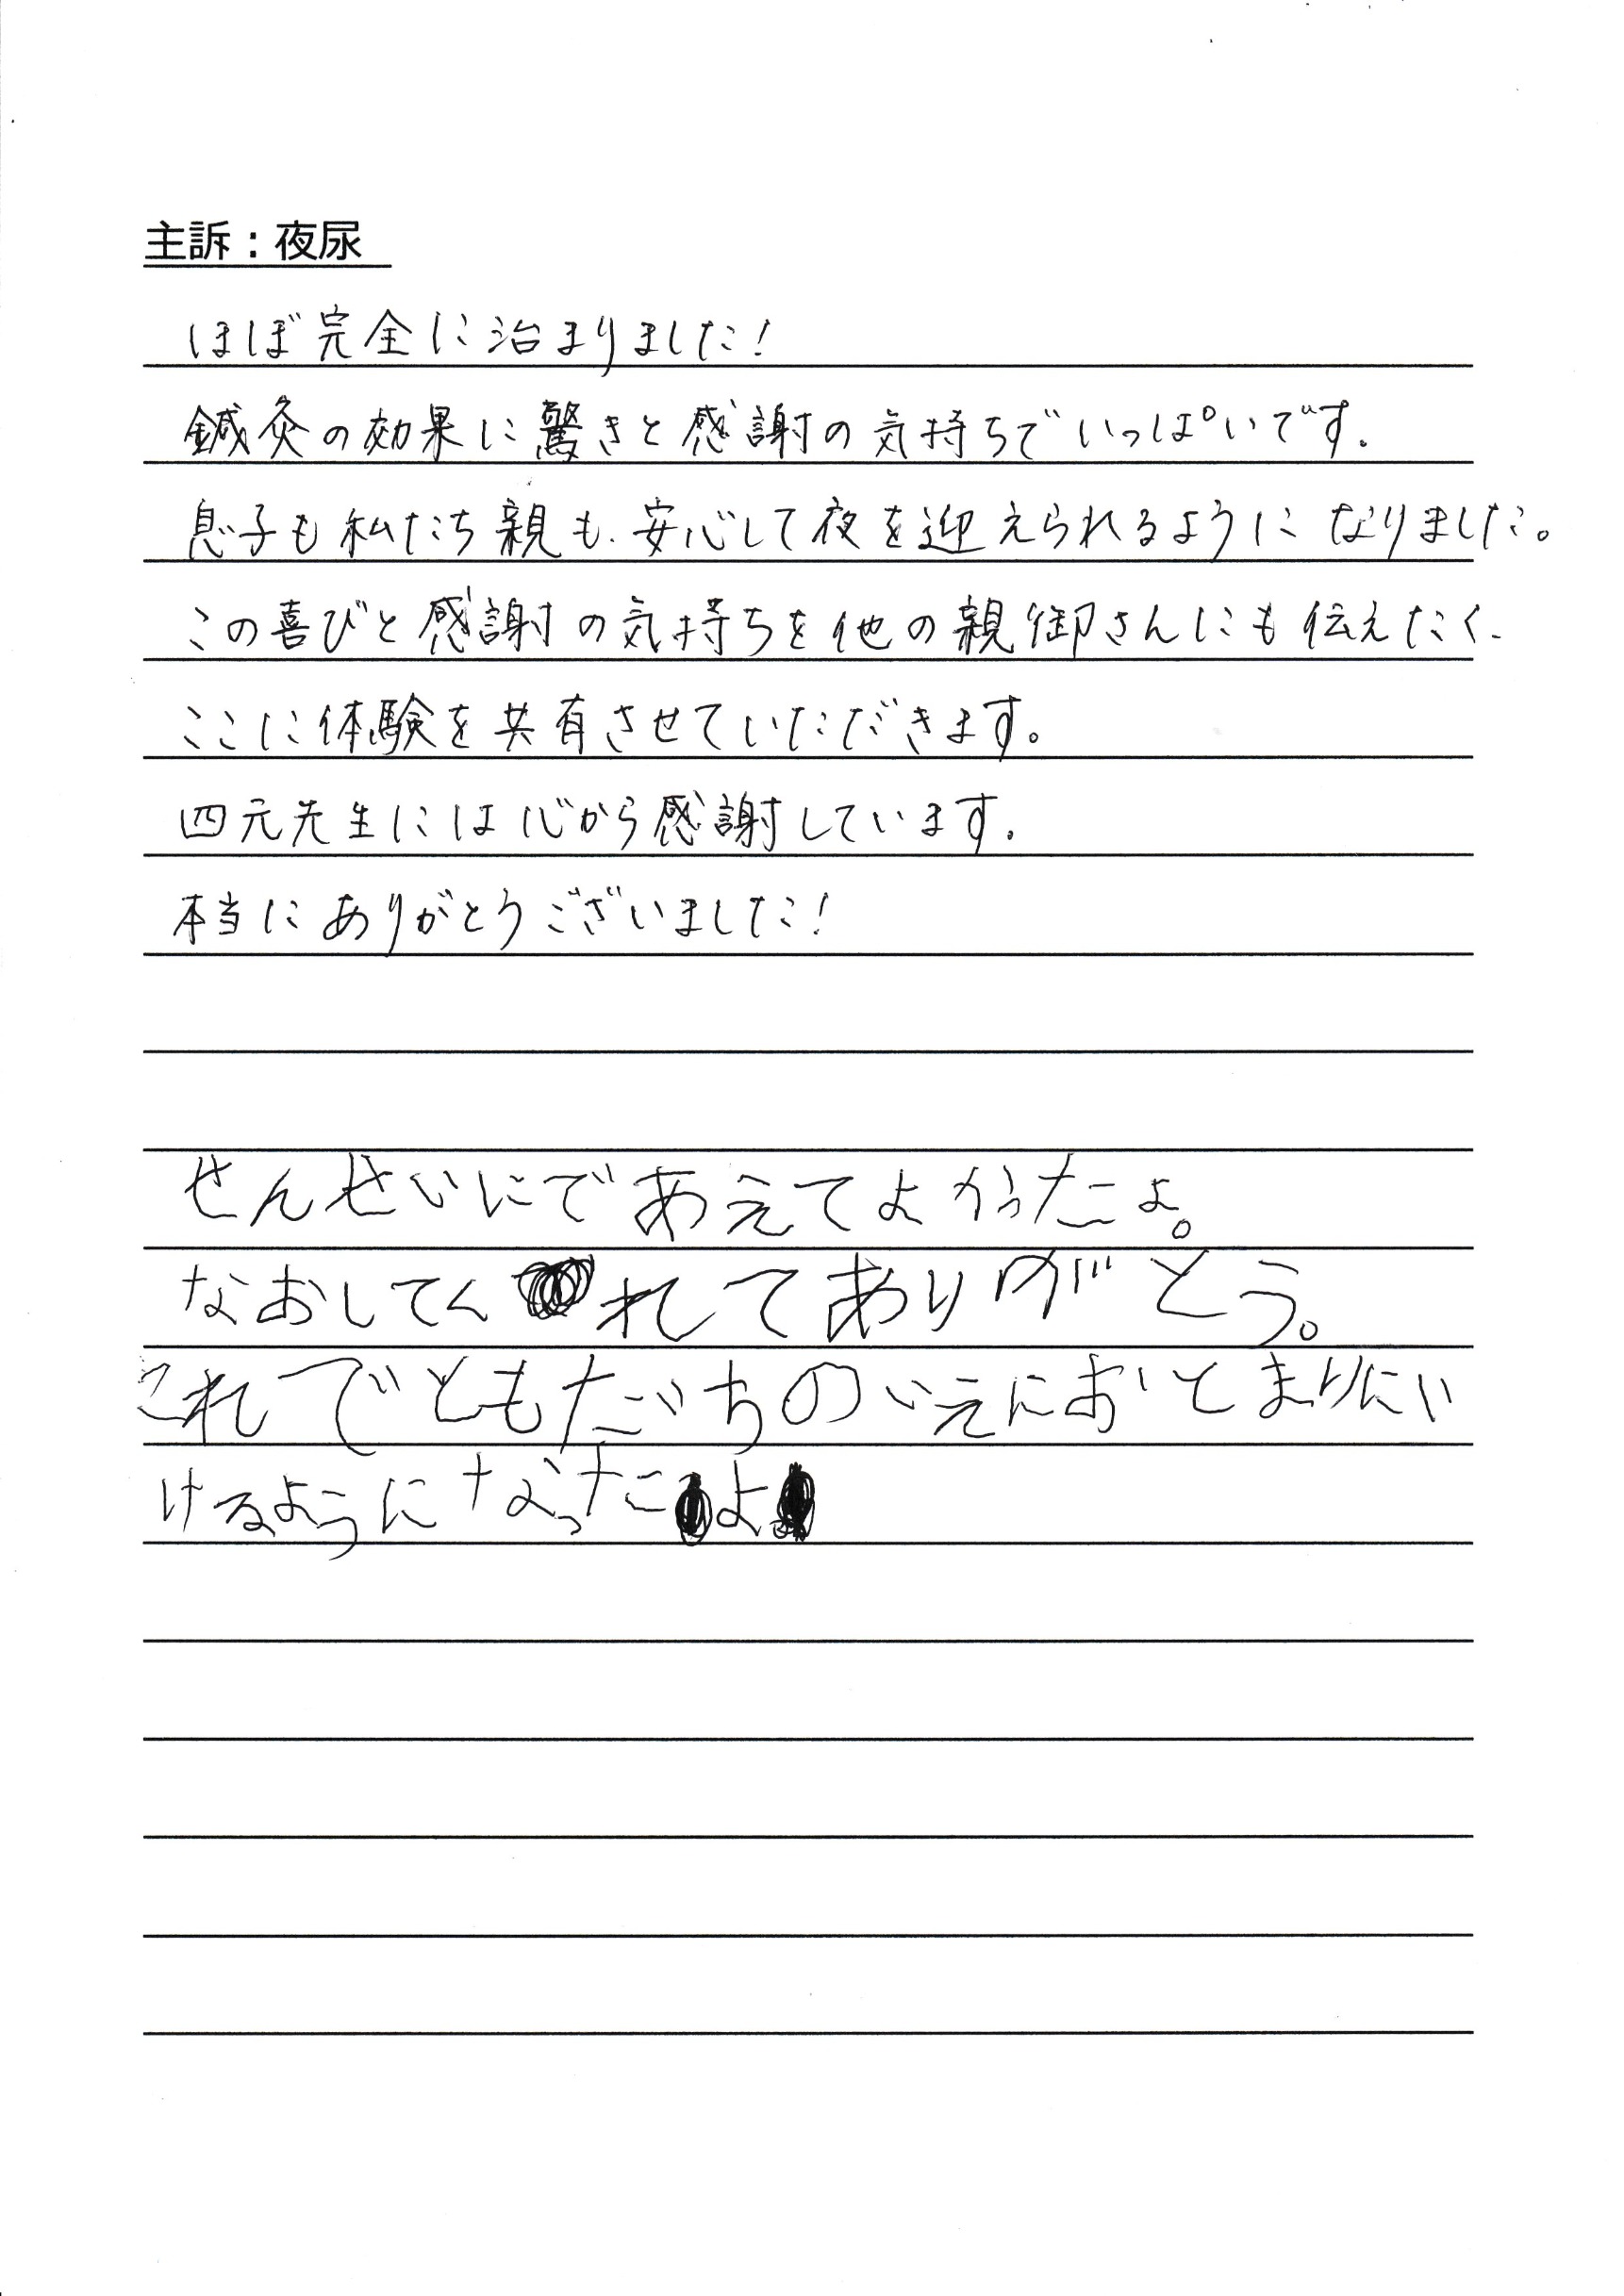 主訴：夜尿
ほぼ完全に治まりました！
鍼灸の効果に驚きと感謝の気持ちでいっぱいです。
息子も私たち親も、安心して夜を迎えられるようになりました。
この喜びと感謝の気持ちを他の親御さんにも伝えたく、
ここに体験を共有させていただきます。
四元先生には心から感謝しています。
本当にありがとうございました！
せんせいにであえてよかったよ。
なおしてくれてありがとう。
これでともだちのいえにおとまりにい
けるようになったよ